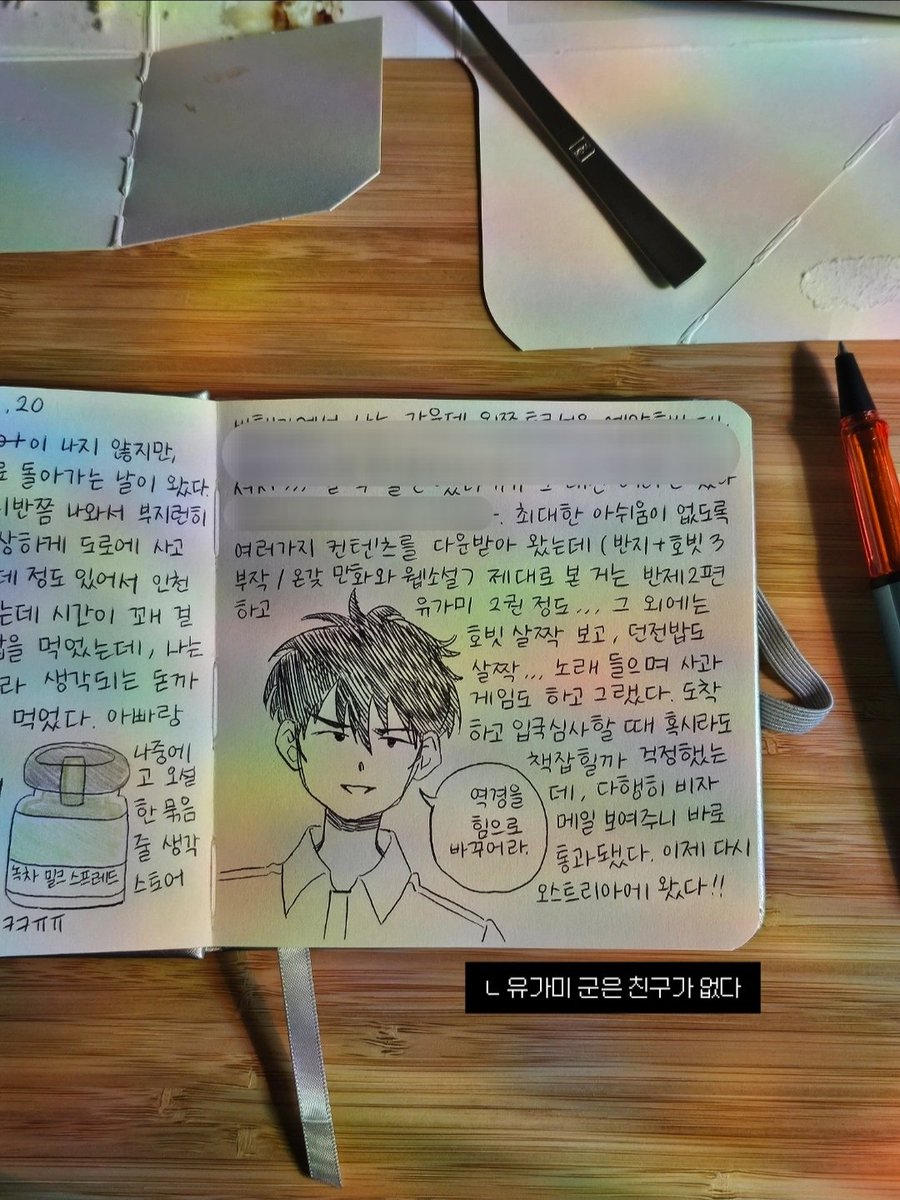 .20
이 나지 않지만,
돌아가는 날이 왔다.
시반쯤 나와서 부지런히
상하게 도로에 사고
데 정도 있어서 인천
는데 시간이 꽤 걸
을 먹었는데, 나는
라 생각되는 돈까
먹었다. 아빠랑
나중에
고 오설
한 묶음
줄 생각
스토어
녹차 밀크 스프레드
ㅋㅋㅠㅠ
최대한 아쉬움이 없도록
여러가지 컨텐츠를 다운받아 왔는데 (반지+호빗 3
부작 / 온갖 만화와 웹소설) 제대로 본 거는 반제2편
하고 유가미 2권 정도... 그 외에는
호빗 살짝 보고, 던전밥도
살짝... 노래 들으며 사과
게임도 하고 그랬다. 도착
하고 입국심사할 때 혹시라도
책잡힐까 걱정했는
데, 다행히 비자
메일 보여주니 바로
통과됐다. 이제 다시
오스트리아에 왔다!!
역경을
힘으로
바꾸어라.
ㄴ 유가미 군은 친구가 없다